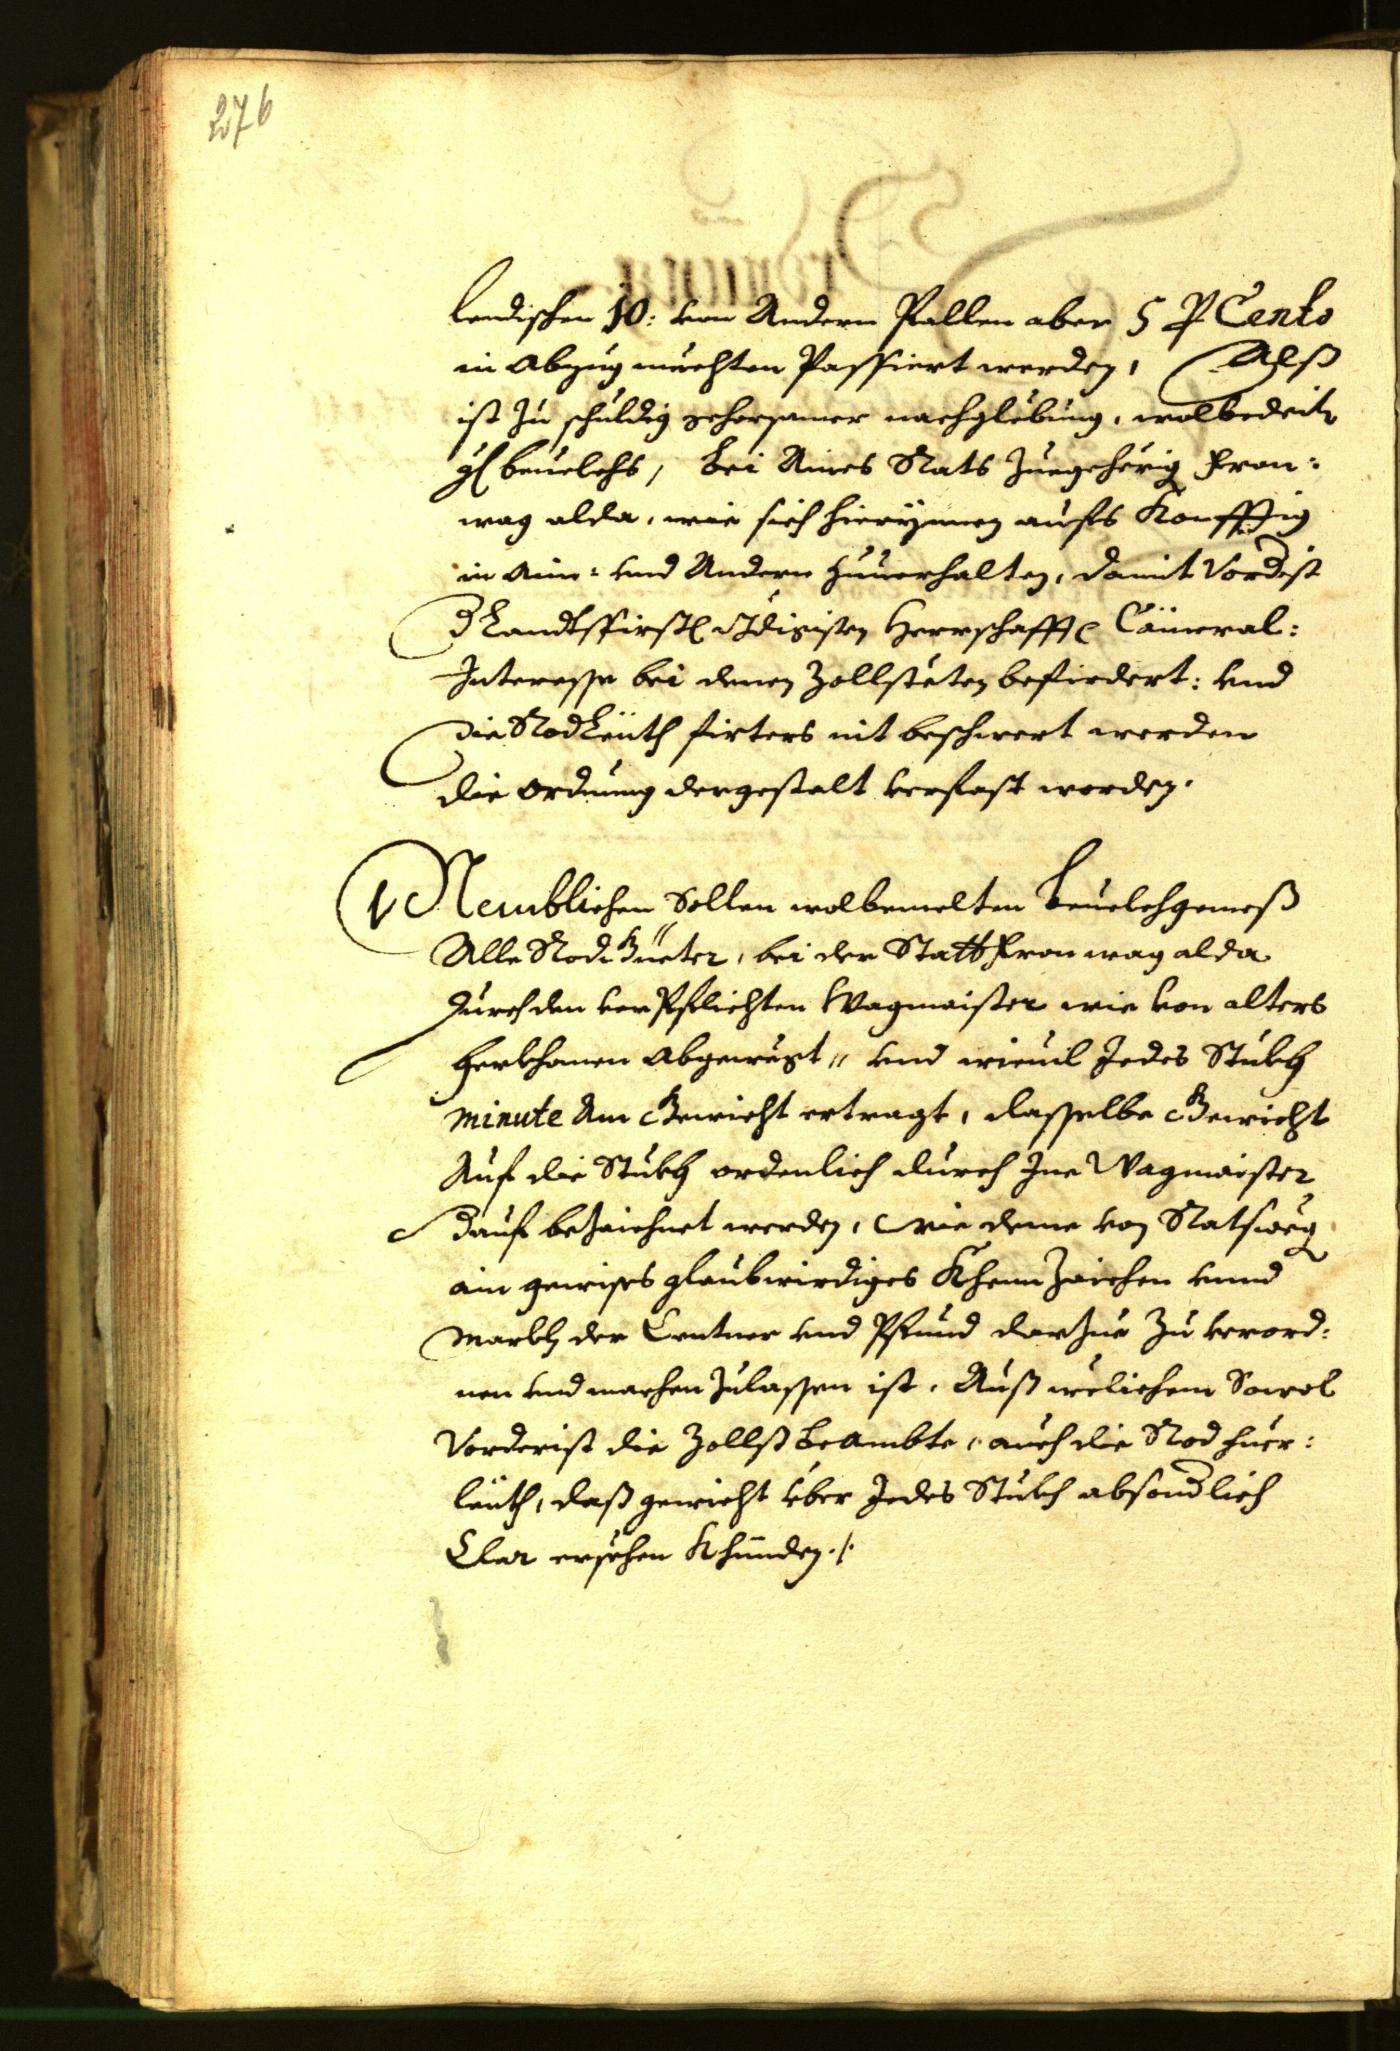 276
lendischen 10: von Andern Pallen aber 5 P Cento
in Abzug mechten Passiert werden, Alß
ist zu schuldig gehorsamer nachglebung, wolbedeit
gl beuelchs, bei Aines Rats zuegehörig Fron:
wag alda, wie sich hierinnen aufs Konfftig
in Ain: vnd Andern zuuerhalten, damit Vordist
Landtsfirstl Herrschafft Cameral:
Interesse bei denen Zollstäten befirdert: vnd
die Rodleuth firters nit beschwert werden
die ordnung dergestalt verfast worden.
1 Nemblichen Sollen wolbemelten beuelchgemeß
Alle Rod Güeter, bei der Statt Fronwag alda
durch den verPflichten Wagmaister wie von alters
herkhomen Abgewegt, vnd wieuil Jedes Stukh
minute Am Gewicht ertragt, dasselbe Gewicht
Auf die Stukh ordenlich durch Jne Wagmaister
darauf bezaichnet werden, wie deme von Ratsweg
ain gewises glaubwirdiges KhennZaichen vnnd
Markh der Centner vnd Pfund darzue zu verord:
nen vnd machen zulassen ist. Auß welichem Sowol
Vorderist die Zollß beambte, auch die Rod fuer:
leuth, daß gewicht über Jedes Stukh absondlich
Clar ersehen Khünden ./.